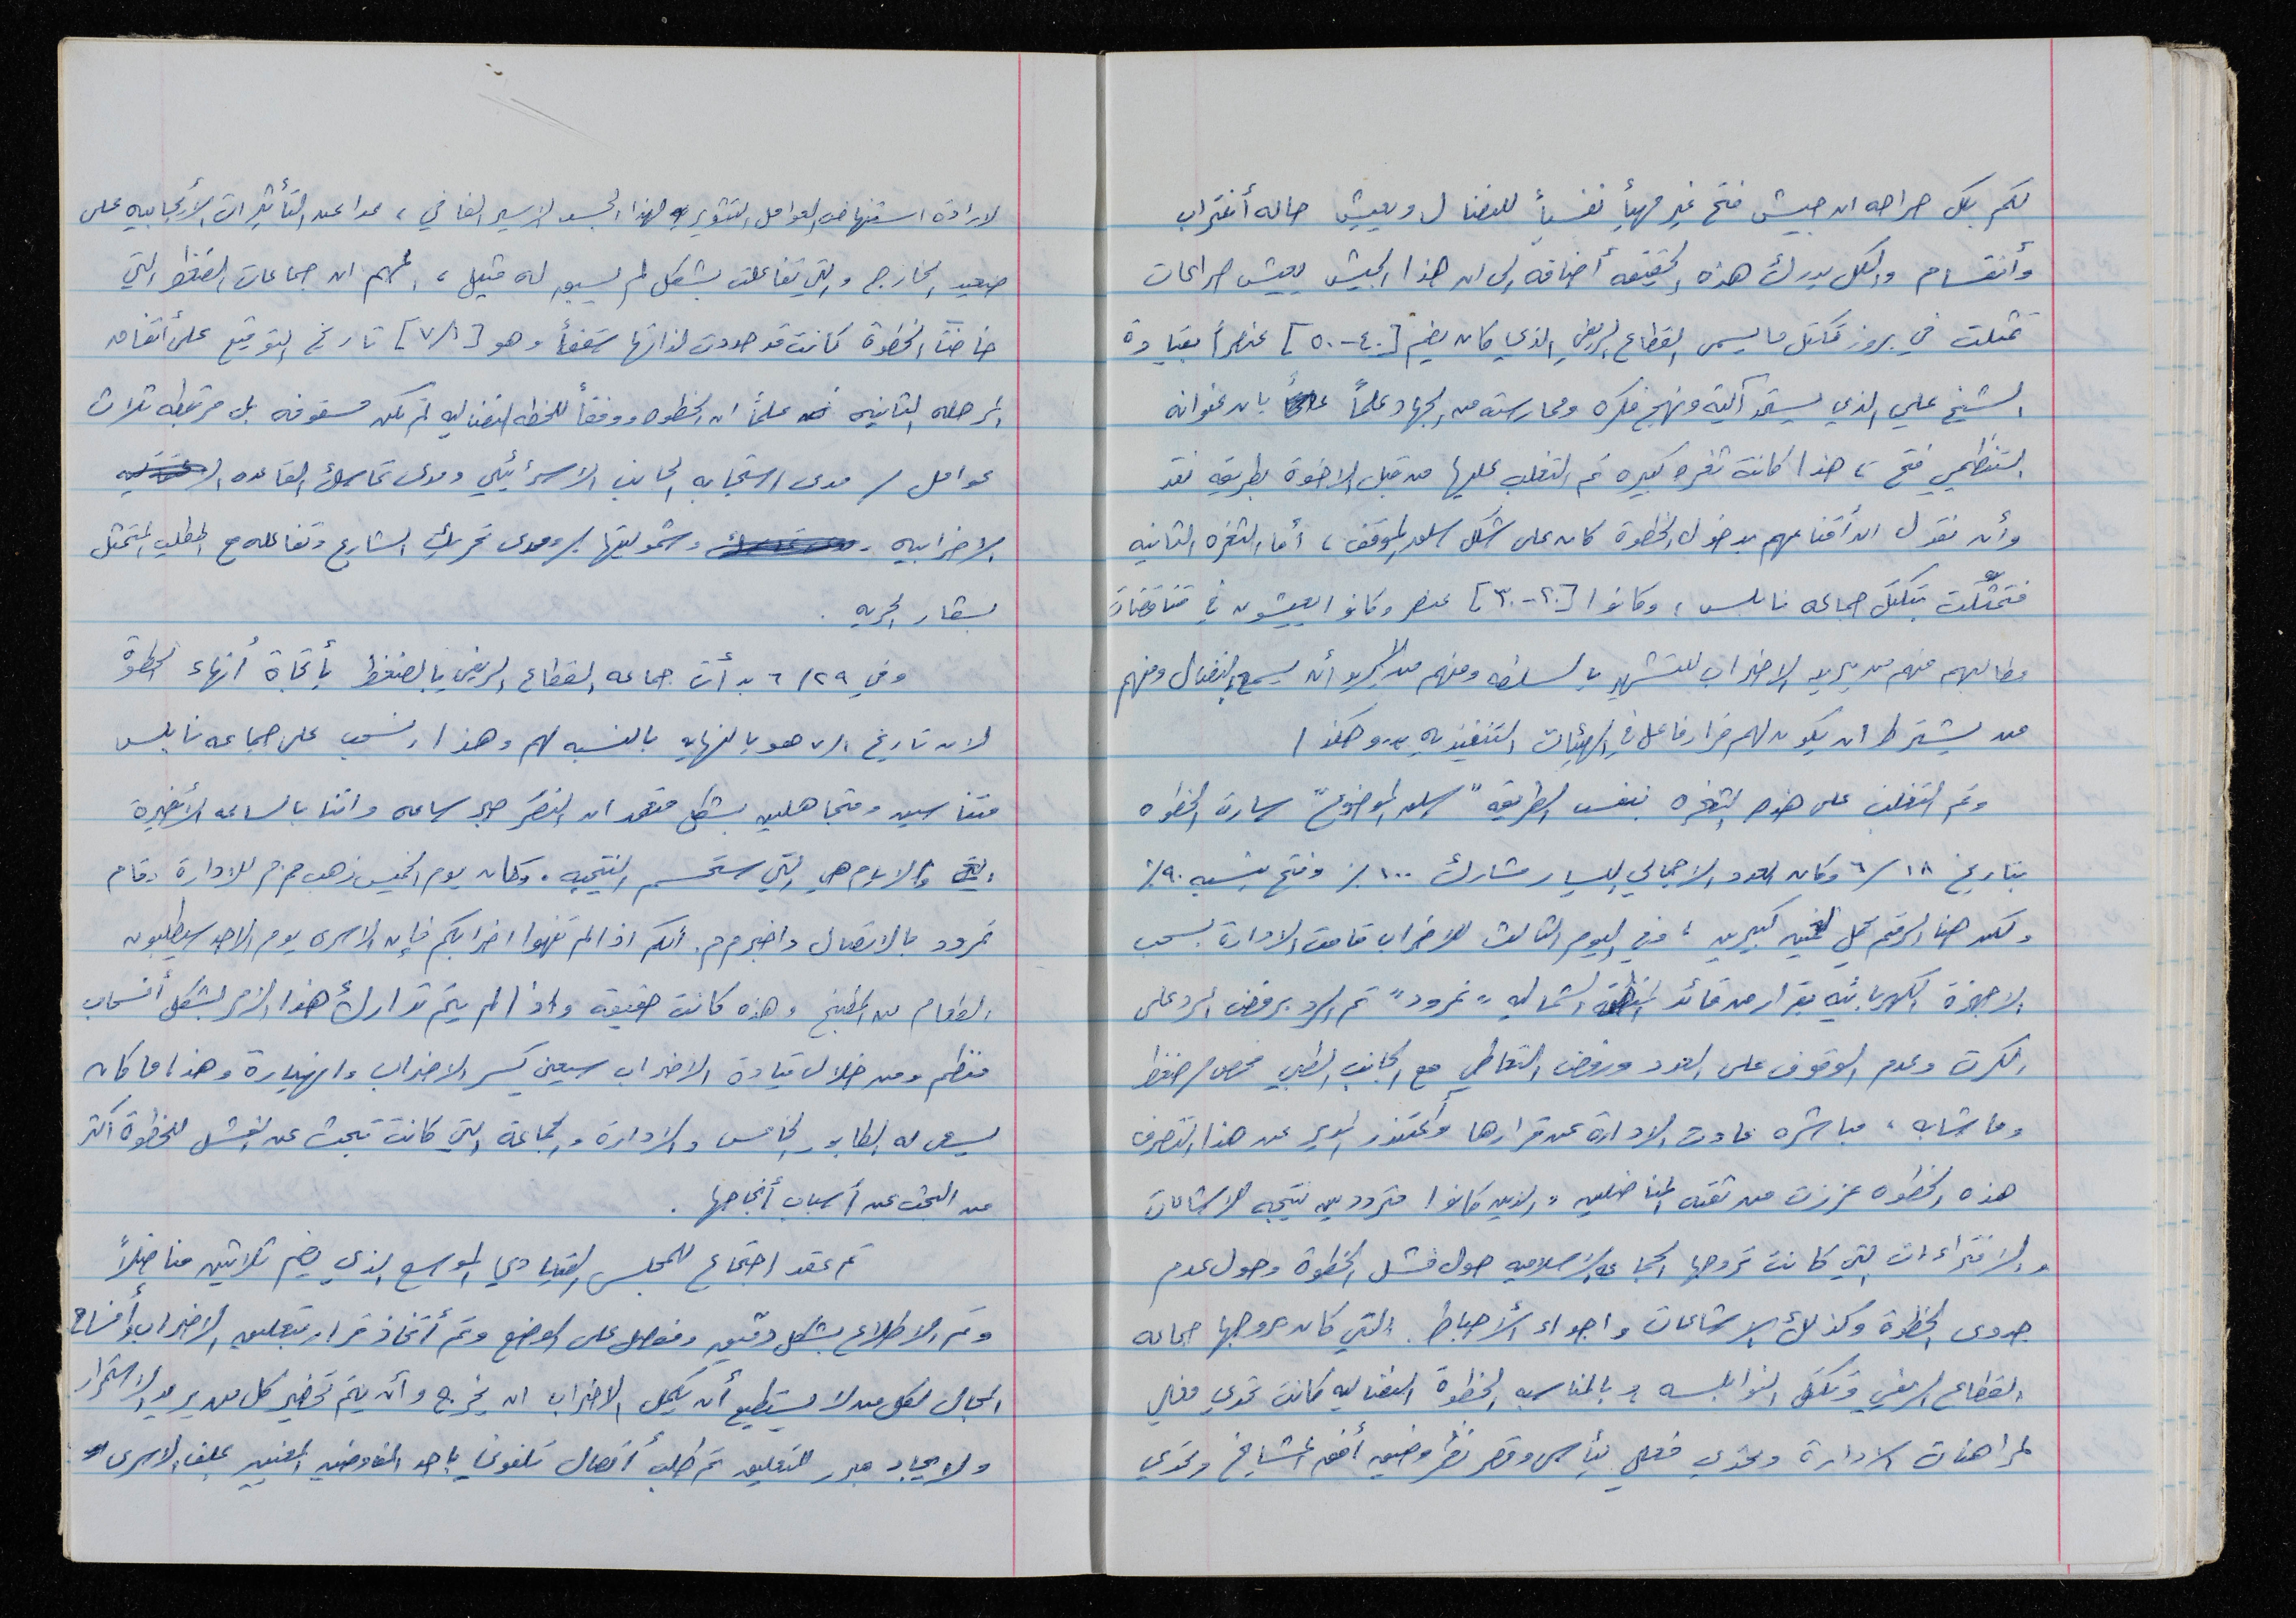 لكم بكل صراحه ان جيش فتح غير مهيأ نفسياً للنضال ويعيش حاله أغتراب
وأنقسام والكل يدرك هذه الحقيقه أضافه الى ان هذا الجيش يعيش صراعات
تمثلت في بروز تكتل ما يسمى القطاع الريفي الذي كان يضم [٤٠-٥٠] عنصراً بقيادة
الشيخ علي الذي يستمد آلية ونهج فكره وممارسته من الجهاد علماً بان عنوانه
التنظيمي فتح ، هذا كانت ثغره كبيره تم التغلب عليها من قبل الاخوة بطريقه نقد
وأن نقول ان أقناعهم بدخول الخطوة كان على شكل سلق الموقف ، أما الثغره الثانيه
فتمثلت بتكتل جماعه نابلس ، وكانوا [٢٠-٣٠] عنصر وكانوا يعيشون في تناقضات
مطالبهم منهم من يريد الاضراب للتشهير بالسلطه ومنهم من لا يريد أن يسمع بالنضال ومنهم
من يشترط ان يكون لهم قرار فاعل في الهيئات التنفيذيه وهكذا
وتم التغلب على هذه الثغره بنفس الطريقه "سلق الموضوع" سارت الخطوه
بتاريخ ١٨/٦ وكان العدد الاجمالي اليسار مشارك ١٠٠٪ وفتح بنسبه ٩٠٪
ولكن هذا الرقم كبيرين ، وفي اليوم الثالث للاضراب قامت الادارة بسحب
الاجهزة الكهربائيه بقرار من قائد المنطقه الشماليه "نمرود" تم الرد برفض الرد على
الكرت وعدم الوقوف على العدد ورفض التعاطي مع الجانب الطبي فحص ضغط
وما شابه ، مباشره عادت الادارة عن قرارها وأعتذر المدير عن هذا التصرف
هذه الخطوه عززت من ثقه المناضلين والذين كانوا مترددين نتيجه للاشاعات
والافتراءات التي كانت تروجها الجماعه الاسلاميه حول فشل الخطوة وحول عدم
جدوى الخطوة وكذلك الاشاعات واجواء الأحباط التي كان يروجها جماعه
القطاع الريفي وتكتل النوابلسه وبالمناسبه الخطوة النضاليه كانت تحدي فعلي
لمراهنات الادارة وتحدي فعلي ليأس وقصر نظر وضيق أفق المشايخ وتحدي
لارادة استنهاض العوامل التثويريه لهذا الجسد الاسير الغافي ، عدا عن التأثيرات الأيجابيه على
صعيد الخارج والتي تفاعلت بشكل لم يسبق له مثيل ، المهم ان جماعات الضغط التي
خاضت الخطوة كانت قد حددت لذاتها سقفاً وهو [٧/١] تاريخ التوقيع على أتفاق
المرحله الثانيه علماً ان الخطوه ووفقاً للخطه النضاليه لم تكن مسقوفه بل مرتبطه بثلاث
عوامل / مدى استجابه الجانب الاسرائيلي ومدى تماسك القاعده
الاضرابيه وشموليتها / ومدى تحرك الشارع وتفاعله مع المطلب المتمثل
بشعار الحريه .
وفي ٢٩/٦ بدأت جماعه القطاع الريفي بالضغط بأتجاة أنهاء الخطوة
لان تاريخ ٧/١ هو بالنهايه بالنسبه لهم وهذا انسحب على جماعه نابلس
متناسين ومتجاهلين بشكل متعمد ان النصر صبر ساعه واننا بالساعه الأخيرة
والايام هي التي ستحسم النتيجه . وكان يوم الخميس ذهب م م للادارة وقام
نمرود بالاتصال واخبر م م . أنكم اذا لم تنهوا اضرابكم فإن الاسرى يوم الاحد سيطلبون
الطعام من المطبخ وهذه كانت حقيقه واذا لم يتم تدارك هذا الامر بشكل أنسحاب
منظم ومن خلال قيادة الاضراب سيعني كسر الاضراب وانهيارة وهذا ما كان
يسعى له الطابور الخامس والادارة والجماعة التي كانت تبحث عن الفشل للخطوة أكثر
من البحث عن أسباب أنجاحها .
تم عقد اجتماع للمجلس القيادي الموسع الذي يضم ثلاثين مناضلاً
وتم الاطلاع بشكل دقيق ومفصل على الوضع وتم أتخاذ قرار بتعليق الاضراب وأفساح
المجال لكل من لا يستطيع أن يكمل الاضراب ان يخرج وأن يتم تحضير كل من يريد الاستمرار
ولايجاد مبرر للتعليق تم طلب أتصال تلفوني باحد المفاوضين المعنيين بملف الاسرى